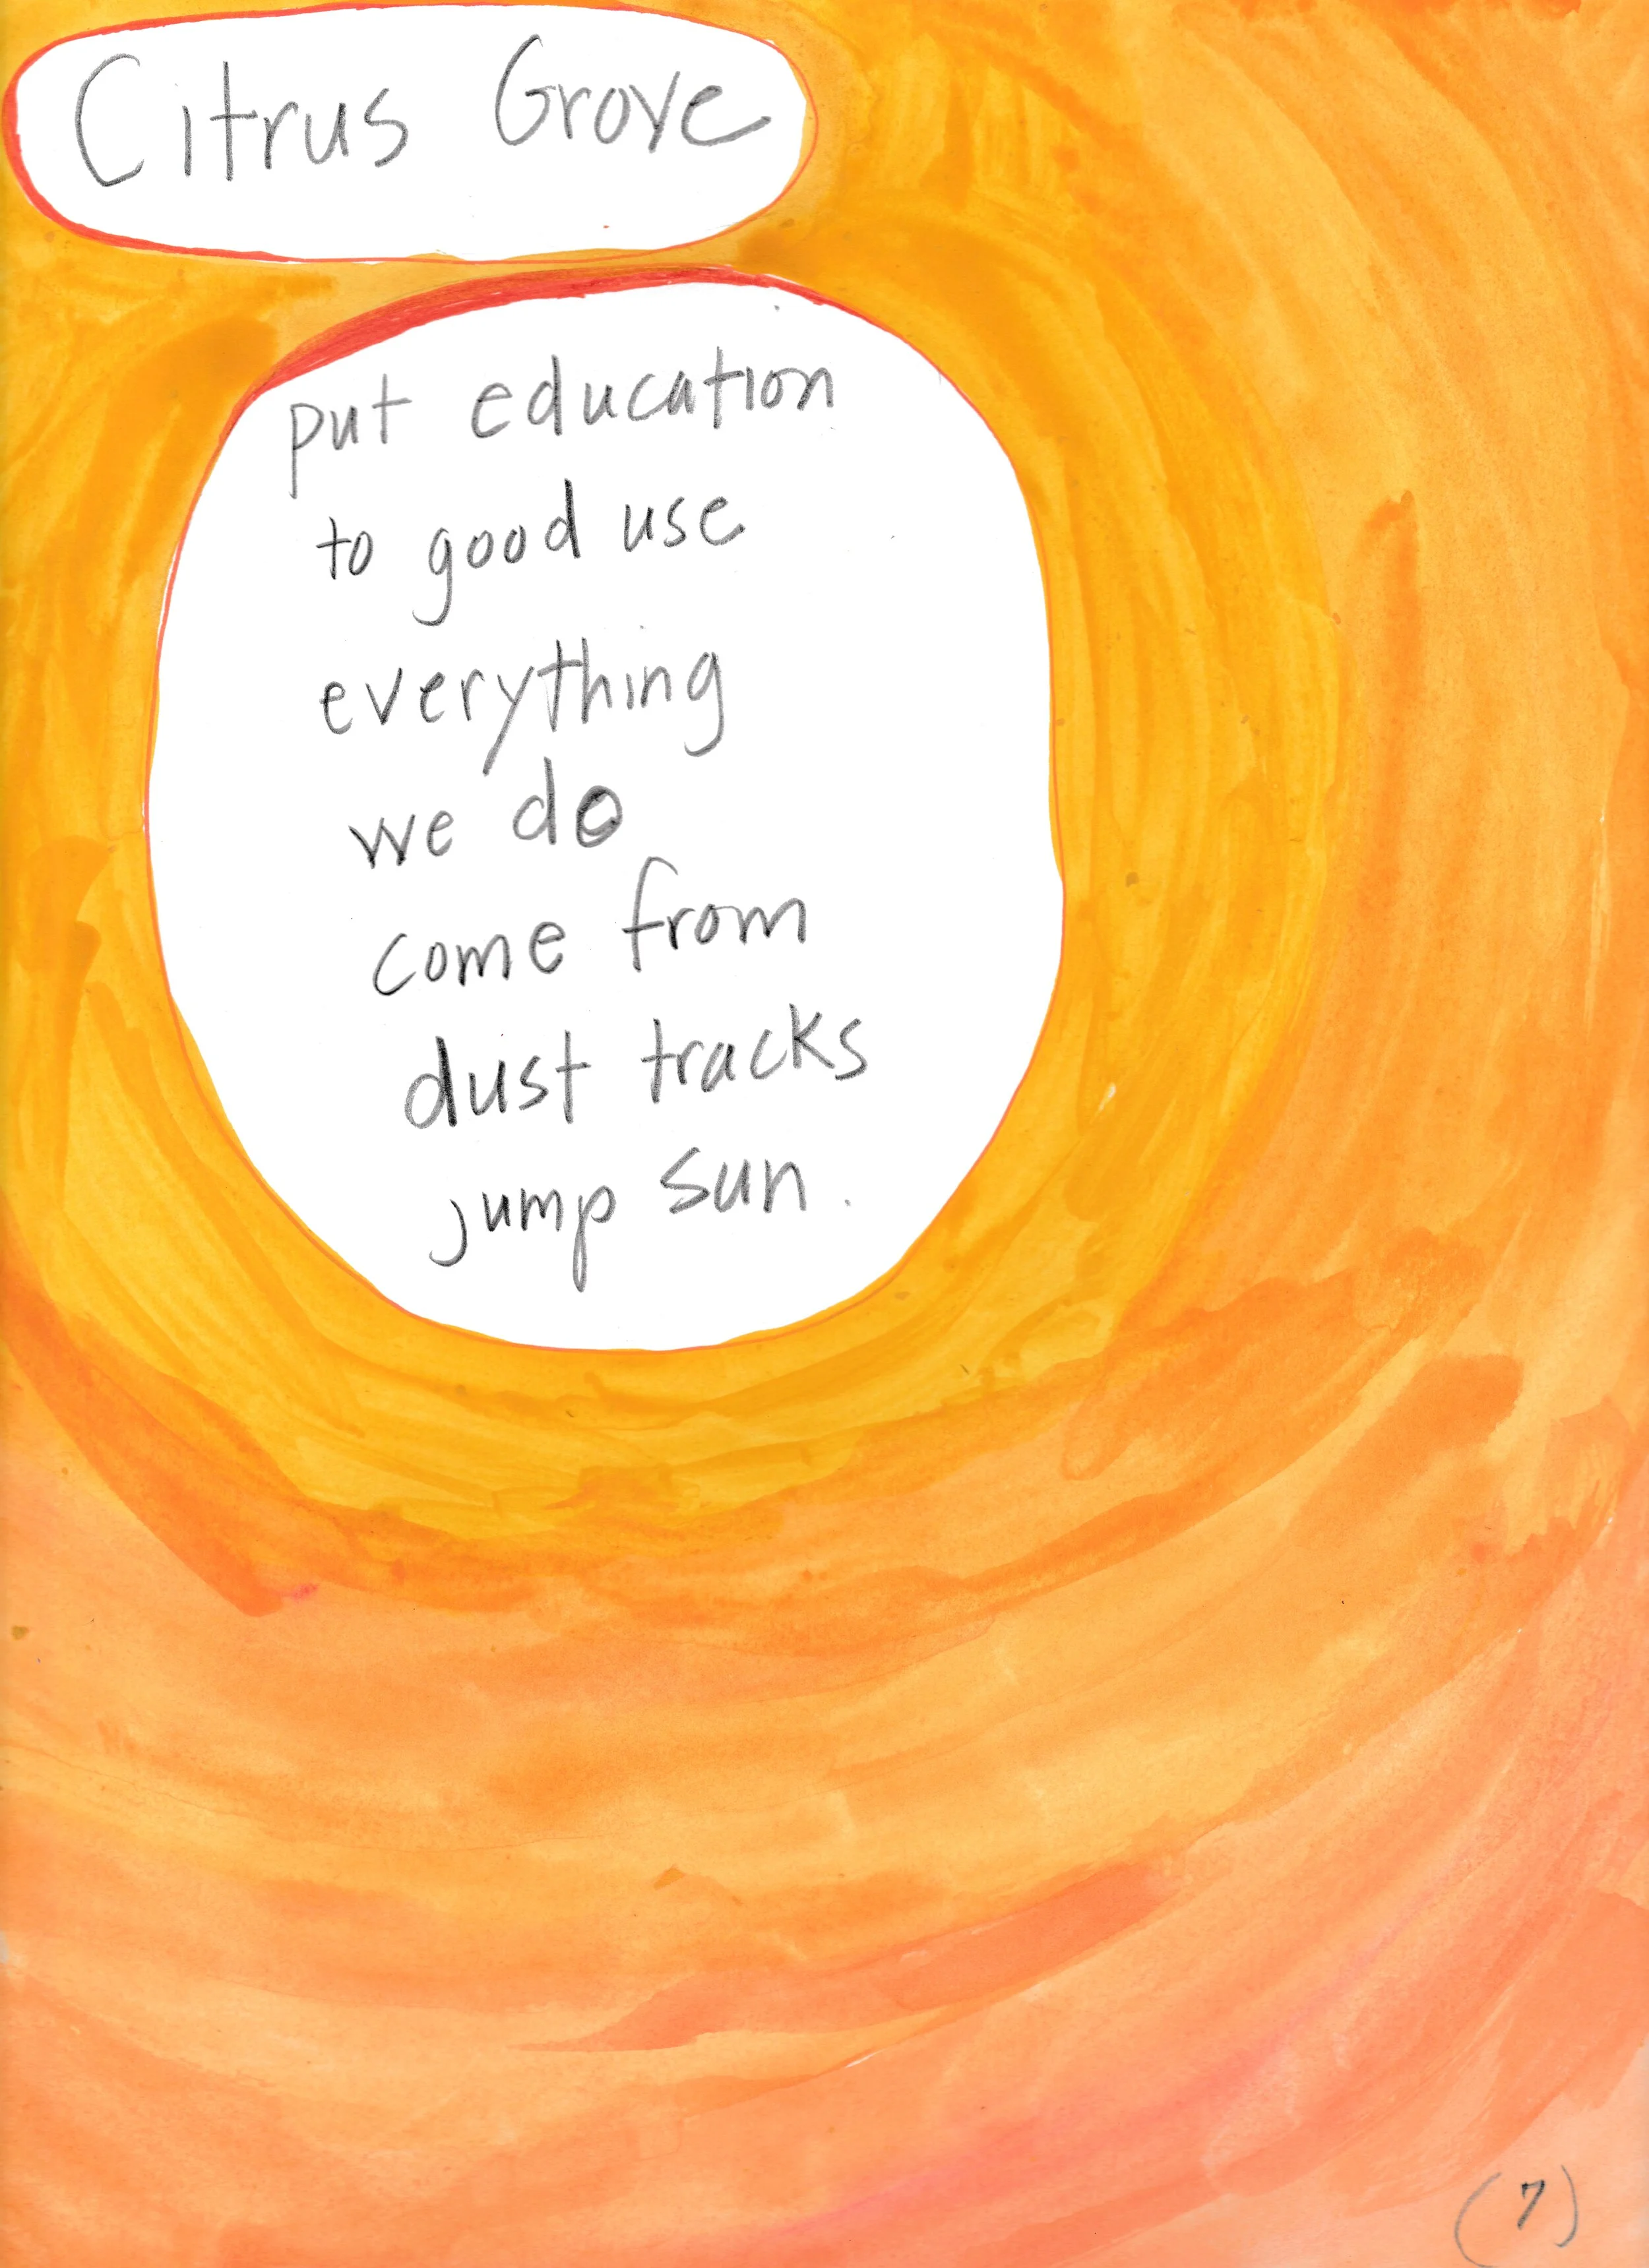 Citrus Grove
put education
to good use
everything
we do
come from
dust tracks
jump sun.
(7)